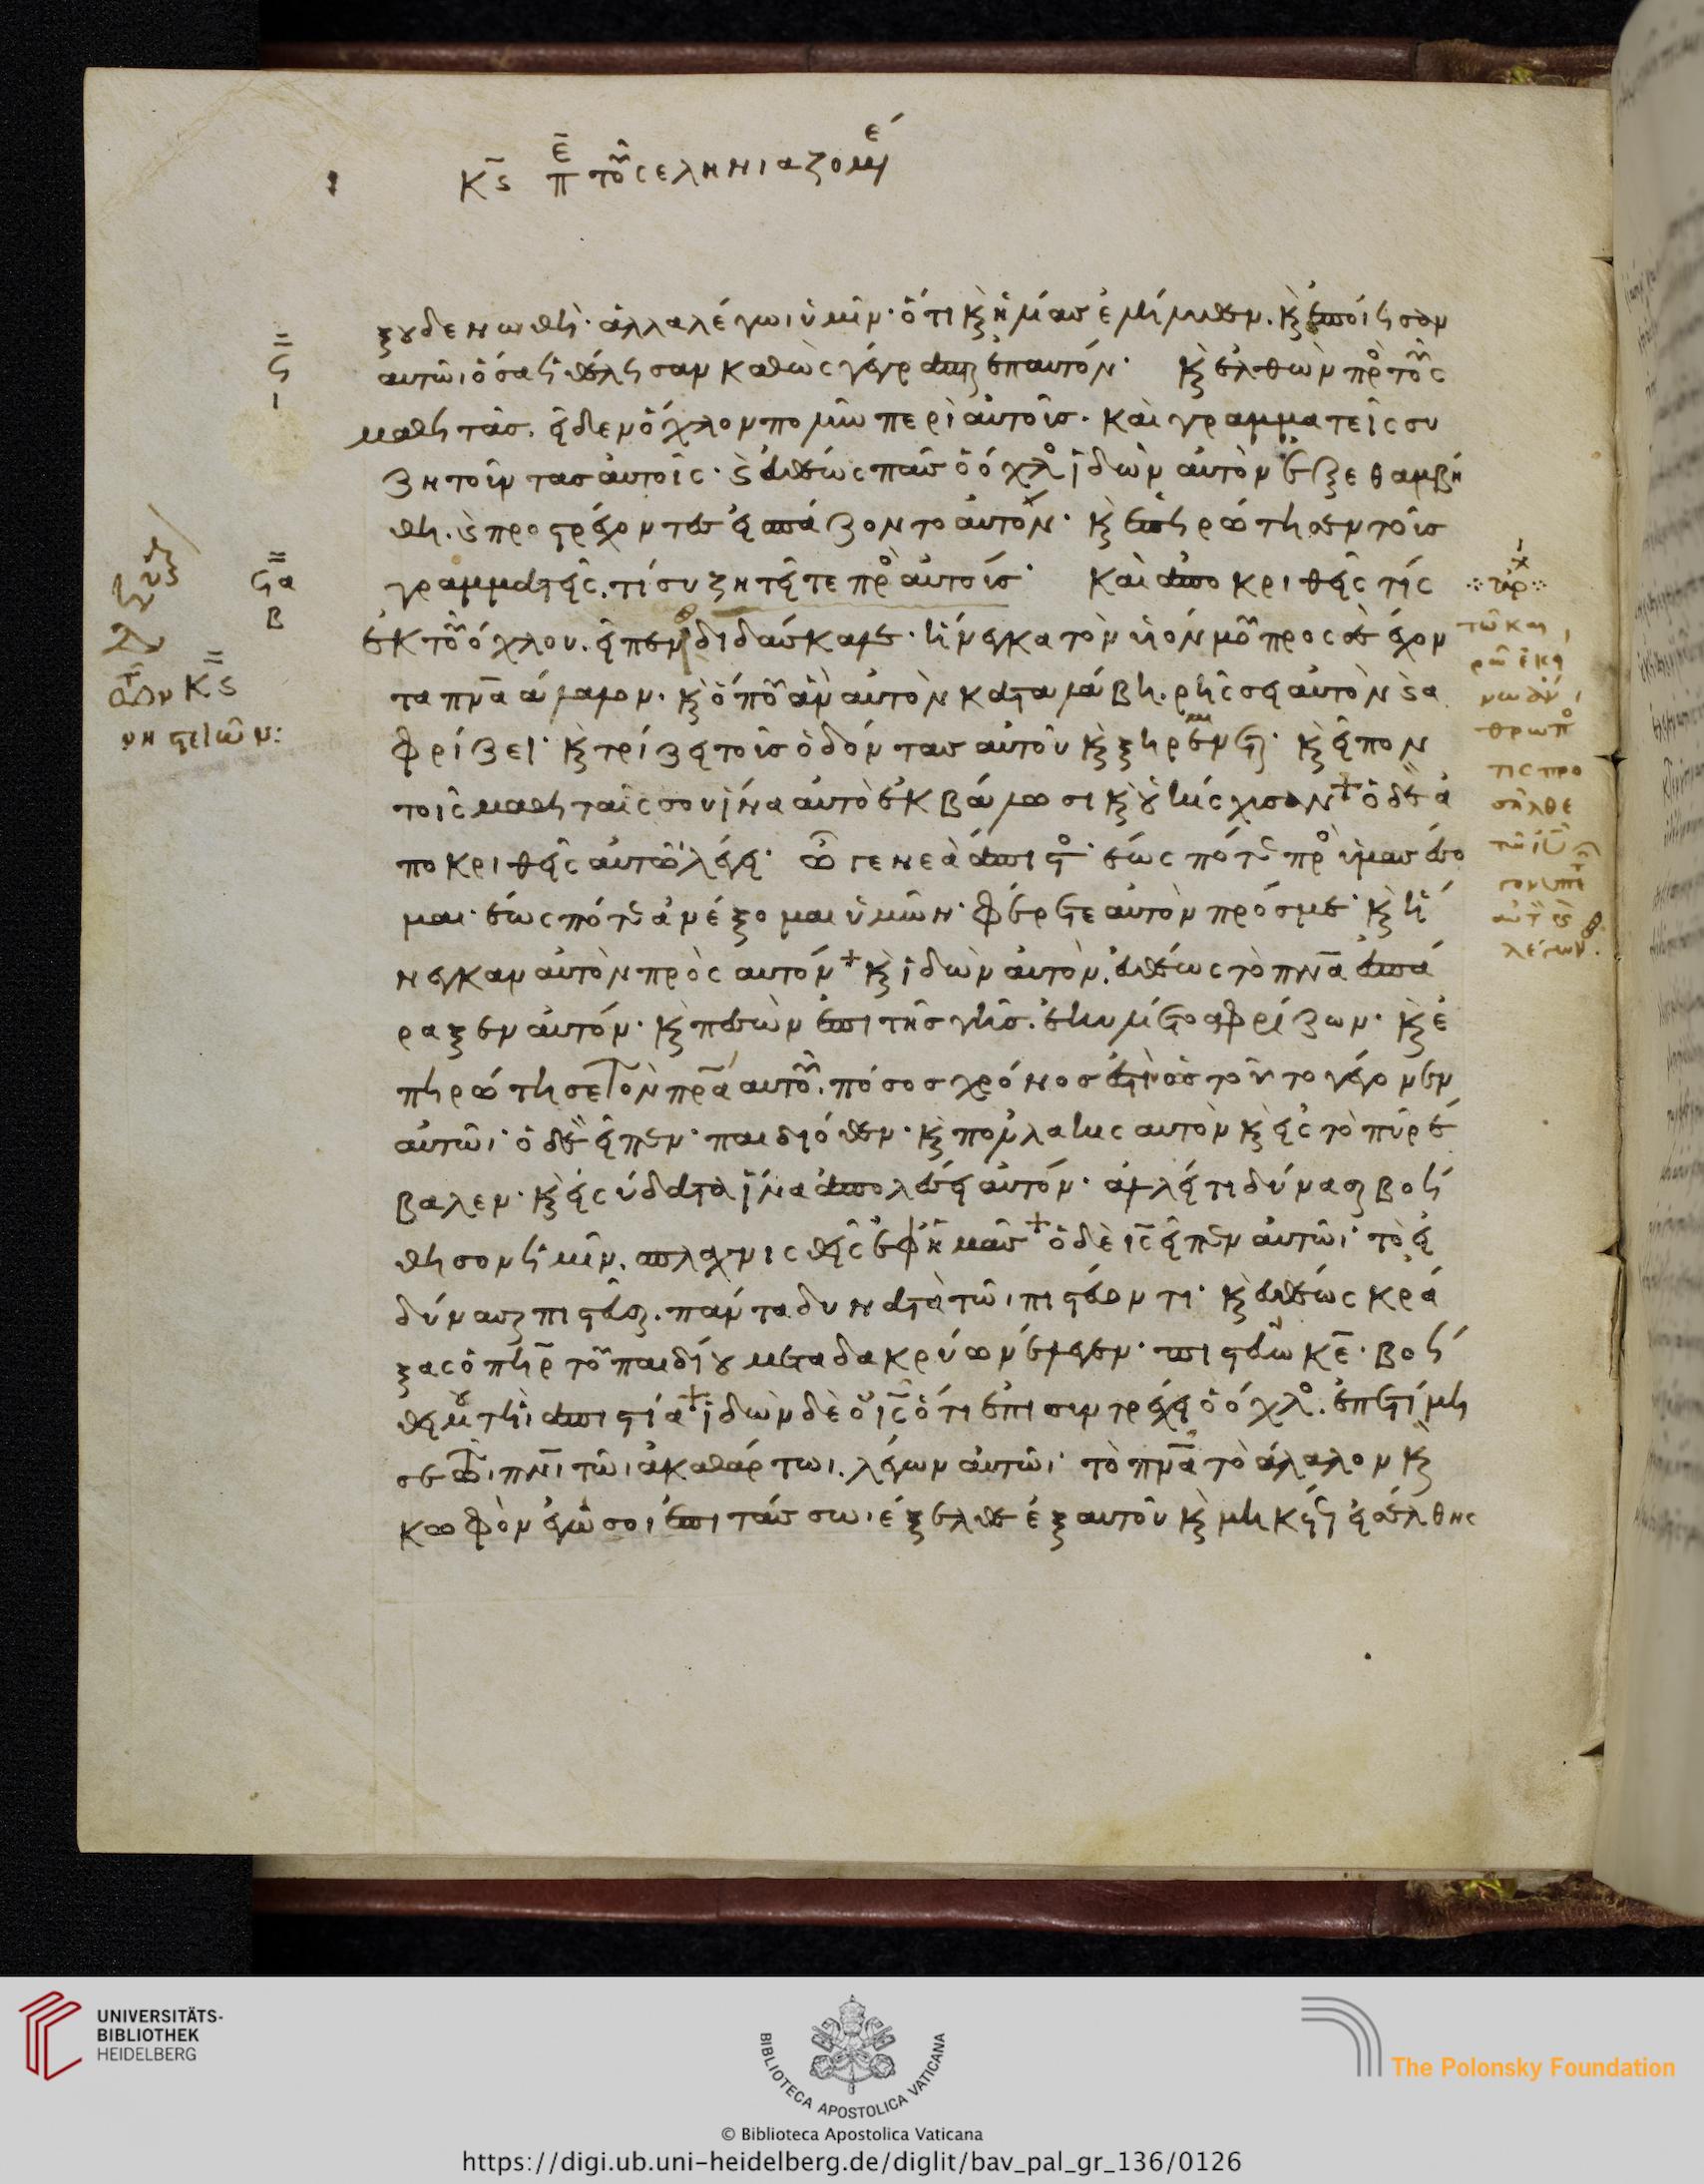 κ̄ς π̄ε τοῦ σεληνιαζομέ
ξουδενωθῆ· ἀλλὰ λέγωι ὑμῖν· ὅτι κ̀ ἠλίας ἐλήλυθεν. κ̀ ἐποίησον
αυτῶι ὅσα ἠθέλησαν καθὼς γέγραπται ἐπ αυτόν· κ̀ ἐλθὼν πρὸς τοὺς
μαθητάς. εἶδεν ὄχλον πολὺν περὶ αὐτοῖσ. καὶ γραμματεῖς συ
ζητοῦντασ αὐτοῖς· κ̀ εὐθέως πᾶσ ὁ ὄχλος ἰδὼν αὐτὸν ἐξεθαμβή
θη. κ̀ προστρέχοντες ἠσπάζοντο αὐτόν· κ̀ ἐπηρώτησεν τοῖσ
γραμματεῖς. τί συζητεῖτε πρὸς αὐτούσ· καὶ ἀποκριθεῖς τίς
ἐκ τοῦ ὄχλου. εἶπεν διδάσκαλε· ἤνεγκα τὸν υἱόν μοῦ προς σὲ ἔχον
τα πν̄α ἄλαλον. κ̀ ὅποῦ ἂν αὐτὸν καταλάβη. ρήσσει αὐτὸν κ̀ α
φρίζει· κ̀ τρίζει τοὺσ ὀδόντας αὐτοῦ κ̀ ξηραίνεται· κ̀ εἶπον
τοῖς μαθηταῖς σου ἵνα αὐτὸ ἐκβάλωσι κ̀ οὐκ ἴσχυσαν + ὁ δὲ ἀ
ποκριθεῖς αὐτῶ λέγει· ὦ γενεὰ ἄπιστος· ἕως πότε πρὸς ὑμας ἔσο
μαι· ἕως πότε ἀνέξομαι ὑμῶν· φέρετε αὐτὸν πρόσ με· κ̀ ἤ
νεγκαν αὐτὸν πρὸς αυτόν + κ̀ ἰδὼν αὐτὸν. εὐθέως τὸ πν̄α ἐσπά
ραξεν αὐτόν· κ̀ πεσὼν ἐπι τῆσ γῆσ. ἐκυλίετο αφρίζων. κ̀ ἐ
πηρώτησε τὸν πρ̄α αυτοῦ. πόσοσ χρόνοσ ἐστὶν ὡσ τοῦτο γέγονεν
αὐτῶι· ὁ δὲ εἶπεν· παιδιόθεν· κ̀ πολλακις αυτὸν κ̀ εἰς τὸ πῦρ ἔ
βαλεν. κ̀ εἰς ὕδατα ἵνα ἀπολέσει αὐτόν· ἀλλ εἴ τι δύνασαι βοή
θησον ἡμῖν. σπλαχνισθεὶς ἐφ ἡμᾶσ + ὁ δὲ ις̄ εἶπεν αὐτῶι· τὸ εἰ
δύνασαι πιστεῦσαι. πάντα δυνατὰ τῶι πιστεύοντι· κ̀ εὐθέως κρά
ξας ὁ πὴρ̄ τοῦ παιδίου μετα δακρύων ἔλεγεν· πιστεύω κε̄· βοή
θει μου τῆι ἀπιστία + ἰδὼν δὲ ὁ ις̄ ὅτι ἐπισυντρέχει ὁ ὄχλος. ἐπετίμη
σε τῶι πνῑ τῶι ἀκαθάρτωι. λέγων αὐτῶι· τὸ πν̄α τὸ ἄλαλον κ̀
κωφὸν ἐγώ σοι ἐπιτάσσωι ἔξελθε ἐξ αυτοῦ κ̀ μηκέτι εἰσέλθης
ϛ
ι
ϛα
β
τῶν κ̄ς
νηστειῶν:
τῶ και
ρῶ ἐκεί
νω ἄν
θρωπος
τις προ
σῆλθε
τῶ ιῡ
λέγων.
UNIVERSITÄTS-
BIBLIOTHEK
HEIDELBERG
BIBLIOTECA APOSTOLICA VATICANA
The Polonsky Foundation
© Biblioteca Apostolica Vaticana
https://digi.ub.uni-heidelberg.de/diglit/bav_pal_gr_136/0126